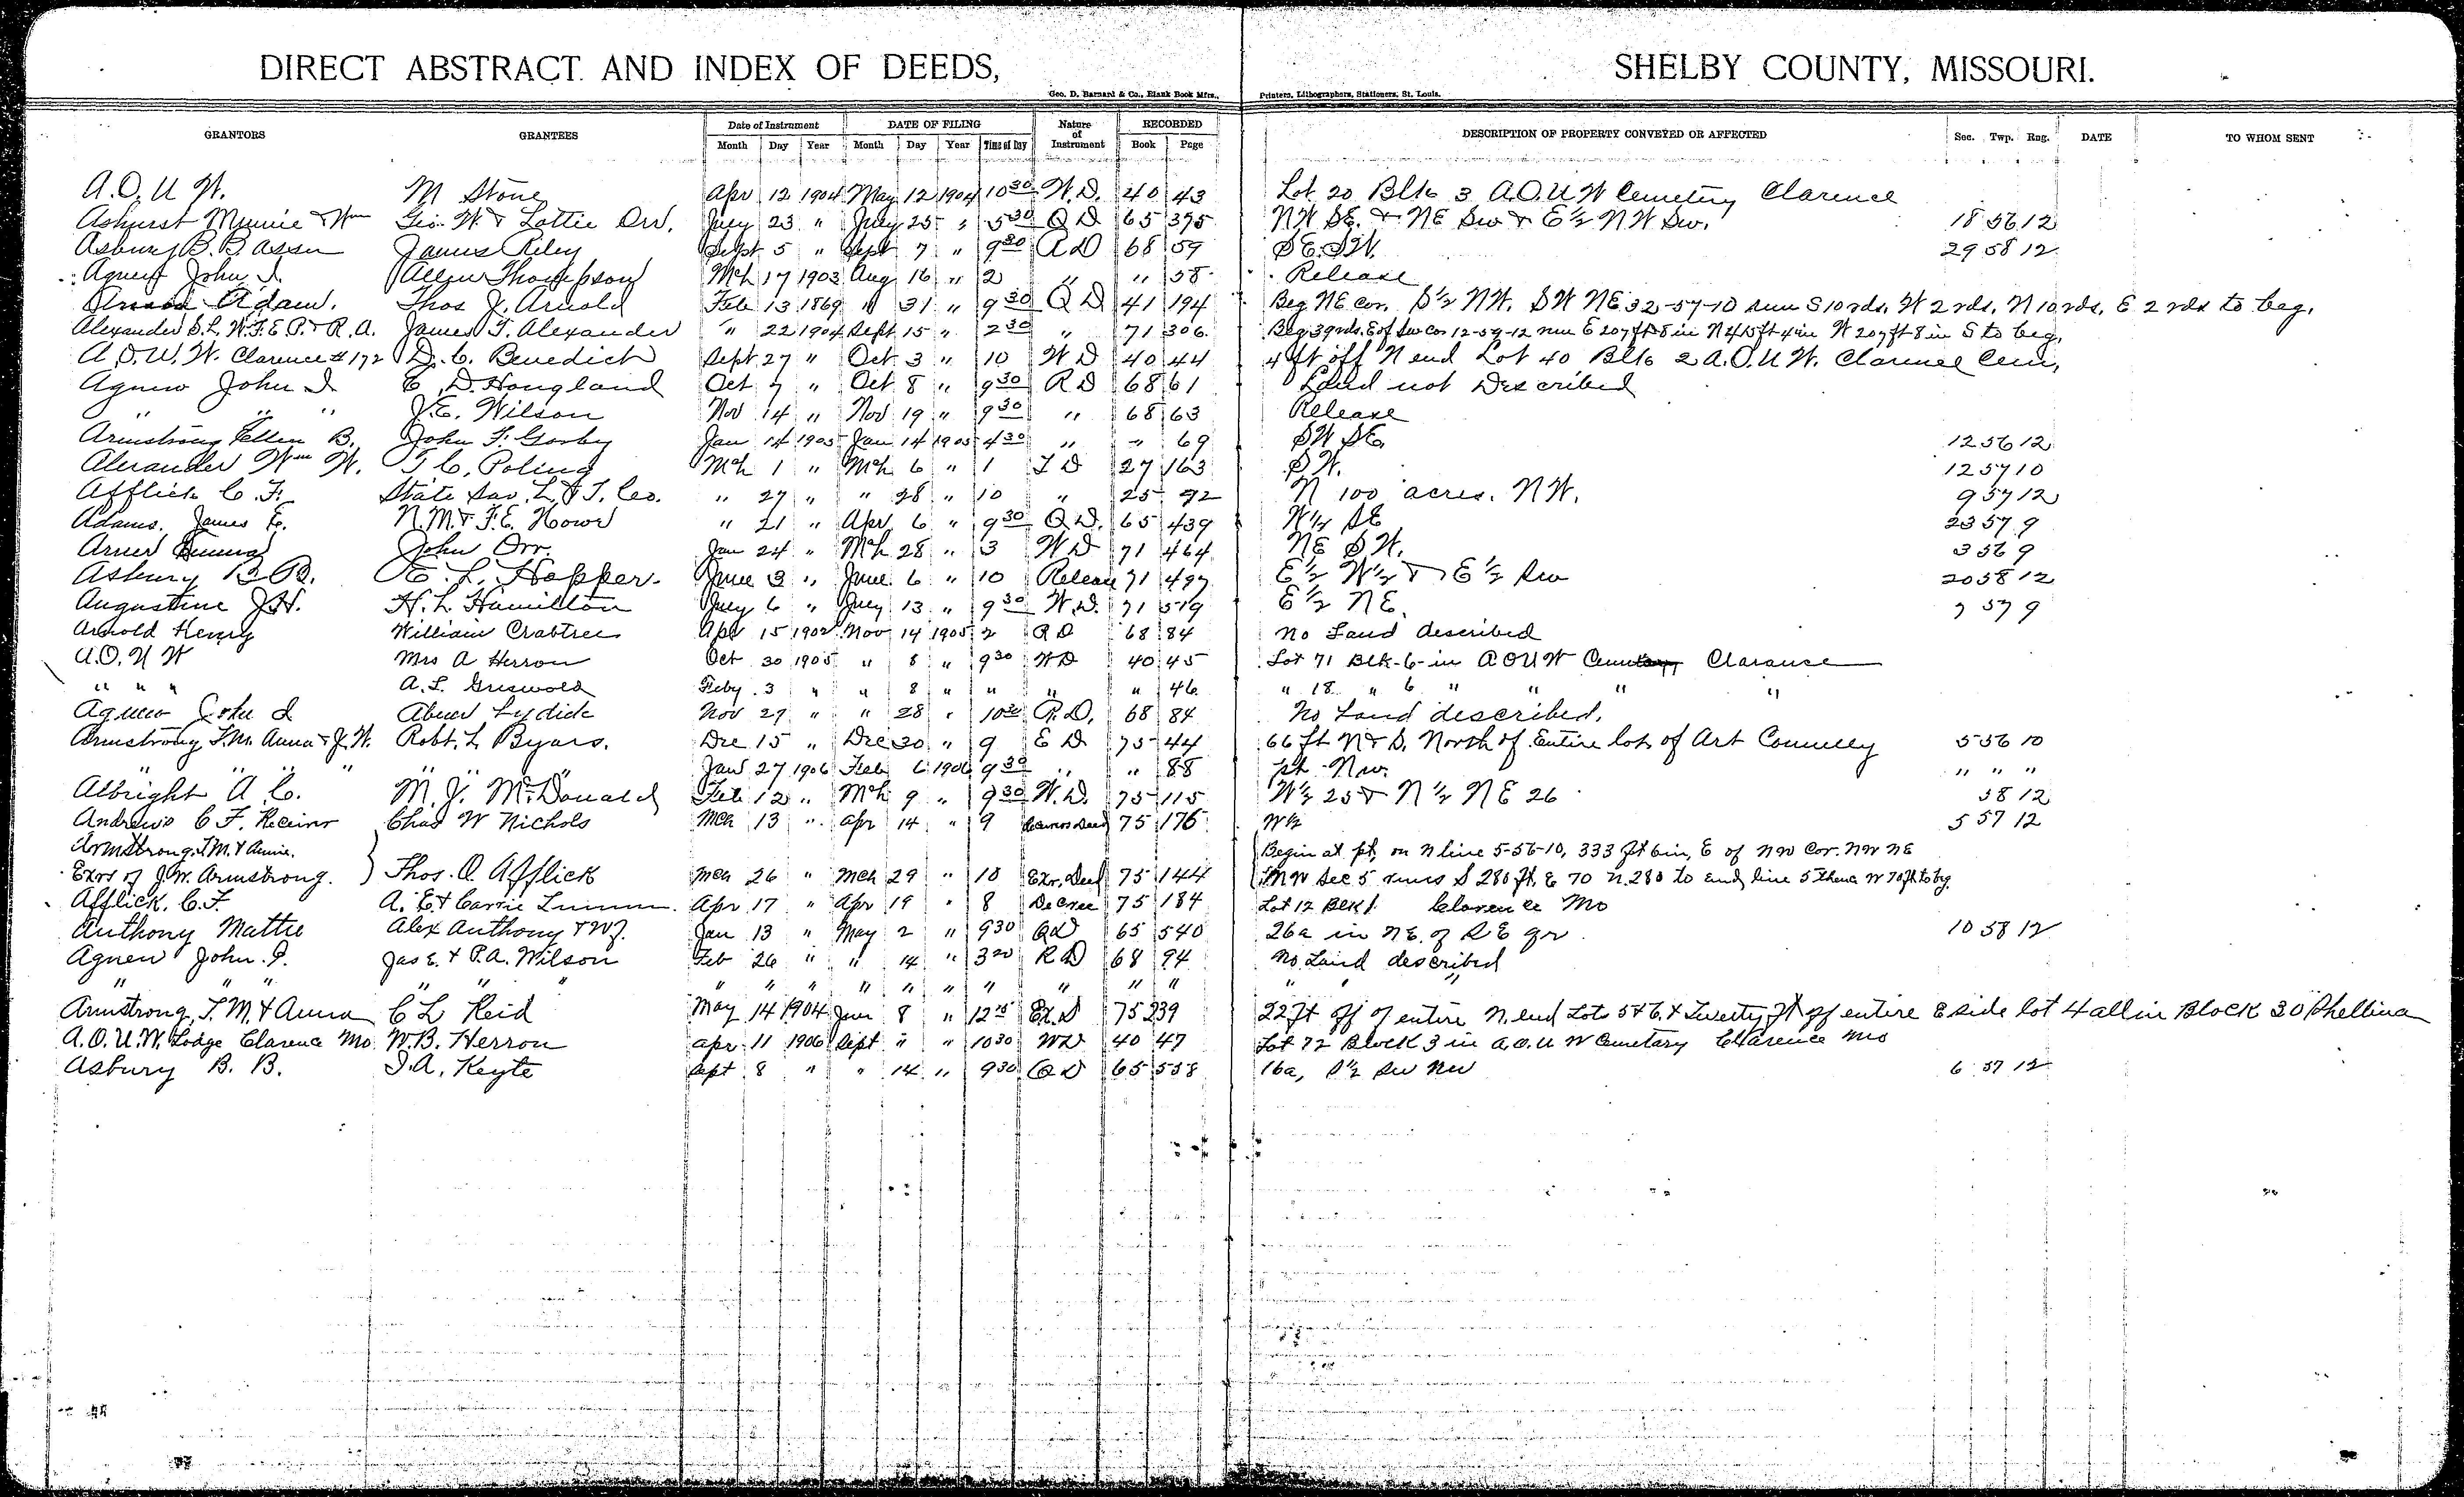 DIRECT ABSTRACT AND INDEX OF DEEDS, SHELBY COUNTY, MISSOURI.
Geo. D. Barnard & Co., Blank Book Mfrs., Printers, Lithographers, Stationers, St. Louis.
GRANTORS GRANTEES Date of Instrument DATE OF FILING Nature of Instrument RECORDED DESCRIPTION OF PROPERTY CONVEYED OR AFFECTED Sec. Twp. Rng. DATE TO WHOM SENT
Month Day Year Month Day Year Time of Day Book Page
A.O.U W. M Stone Apr 12 1904 May 12 1904 10 30 W.D. 40 43 Lot 20 Blk 3 A.O.U W Cemetery Clarence
Ashurst Minnie & Wm Geo. W. & Lottie Orr. July 23 " July 25 " 5 30 Q D 65 395 NW SE. & NE Sw & E½ NW Sw. 18 56 12
Asbury B. B. assn James Riley Sept 5 " Sept 7 " 9 30 R D 68 59 SE. SW. 29 58 12
Agnew John I. Allen Thompson Mch 17 1903 Aug 16 " 2 " " 58 Release
Adam. Thos J. Arnold Feb 13 1869 " 31 " 9 30 Q D 41 194 Beg NE cor. S½ NW. SW NE 32-57-10 run S 10 rds. W 2 rds, N 10 rds, E 2 rds to beg.
Alexander S. L. W. F. E. P. & R. A. James T. Alexander " 22 1904 Sept 15 " 2 30 " 71 306 Beg 39 rds. E of Sw Cor 12-59-12 run E 207 ft 8 in N 415 ft 4 in W 207 ft 8 in S to beg.
A.O.U.W. Clarence # 172 D. C. Benedict Sept 27 " Oct 3 " 10 W D 40 44 4 ft off N end Lot 40 Blk 2 A.O.U.W. Clarence Cem.
Agnew John I E. D. Hougland Oct 7 " Oct 8 " 9 30 R D 68 61 Land not Described
" " " J. E. Wilson Nov 14 " Nov 19 " 9 30 " 68 63 Release
Armstrong Ellen B. John F. Gosby Jan 14 1905 Jan 14 1905 4 30 " " 69 SW SE. 12 56 12
Alexander Wm W. T C. Poling Mch 1 " Mch 6 " 1 T D 27 163 SW. 12 57 10
Afflick C. F. State Sav. L. & T. Co. " 27 " " 28 " 10 " 25 92 N 100 acres. NW. 9 57 12
Adams, James E. N. M. & F. E. Howe " 21 " Apr 6 " 9 30 Q D. 65 439 W½ SE 23 57 9
Arner John Orr. Jan 24 " Mch 28 " 3 W D 71 464 NE SW. 3 56 9
Asbury B B. E. L. Hopper. June 3 " June 6 " 10 Release 71 497 E½ W½ & E½ Sw 20 58 12
Augustine J.H. H. L. Hamilton July 6 " July 13 " 9 30 W.D. 71 519 E½ NE. 7 57 9
Arnold Henry William Crabtree Apr 15 1902 Nov 14 1905 2 R D 68 84 no Land described
A.O.U W Mrs A Herron Oct 30 1905 " 8 " 9 30 WD 40 45 Lot 71 Blk-6-in AOUW Cemetary Clarence
" " " A. L. Griswold Feby 3 " " 8 " " " " 46 " 18 " 6 " " " "
Agnew John I Abner Lydick Nov 27 " " 28 " 10 30 R.D. 68 84 No Land described.
Armstrong T.M. Anna & J.W. Robt. L Byars. Dec 15 " Dec 30 " 9 E D 75 44 66 ft N & S. North of Entire lot of Art Connelly 5 56 10
" " " " " " " Jan 27 1906 Feb 6 1906 9 30 " " 88 pt Nw. " " "
Albright A. C. M. J. McDonald Feb 12 " Mch 9 " 9 30 W.D. 75 115 W½ 25 & N½ NE 26 58 12
Andrews C F. Receiver Chas W Nichols Mch 13 " Apr 14 " 9 75 176 W½ 5 57 12
Armstrong, T M. & Annie. Begin at pt, on N line 5-56-10, 333 ft 6 in, E of NW Cor. NW NE
Exrs of J.W. Armstrong. Thos. O. Afflick Mch 26 " Mch 29 " 10 Exr. Deed 75 144 NW Sec 5 runs S 280 ft. E 70 N. 280 to line 5 thence W 70 ft to beg.
Afflick, C. F. A. E & Carrie Apr 17 " Apr 19 " 8 Decree 75 184 Lot 12 Blk 1 Clarence Mo
Anthony Mattie Alex Anthony & Wf. Jan 13 " May 2 " 9 30 QD 65 540 26a in NE. of SE qr 10 58 12
Agnew John. I. Jas E. & P.A. Wilson Feb 26 " " 14 " 3 20 R D 68 94 No Land described
" " " " " " " " " " " " " " " " "
Armstrong, T.M. & Anna C L Reid May 14 1904 Jun 8 " 12 15 Ex. D 75 239 22 ft off of entire N. end Lots 5 & 6. & Twenty ft off entire E side lot 4 all in Block 30 Shelbina
A.O.U.W. Lodge Clarence Mo. W. B. Herron Apr 11 1906 Sept " " 10 30 WD 40 47 Lot 72 Block 3 in A.O.U W Cemetary Clarence Mo
Asbury B. B. I. A. Keyte Sept 8 " " 14 " 9 30 Q D 65 558 16a, S½ Sw Nw 6 57 12